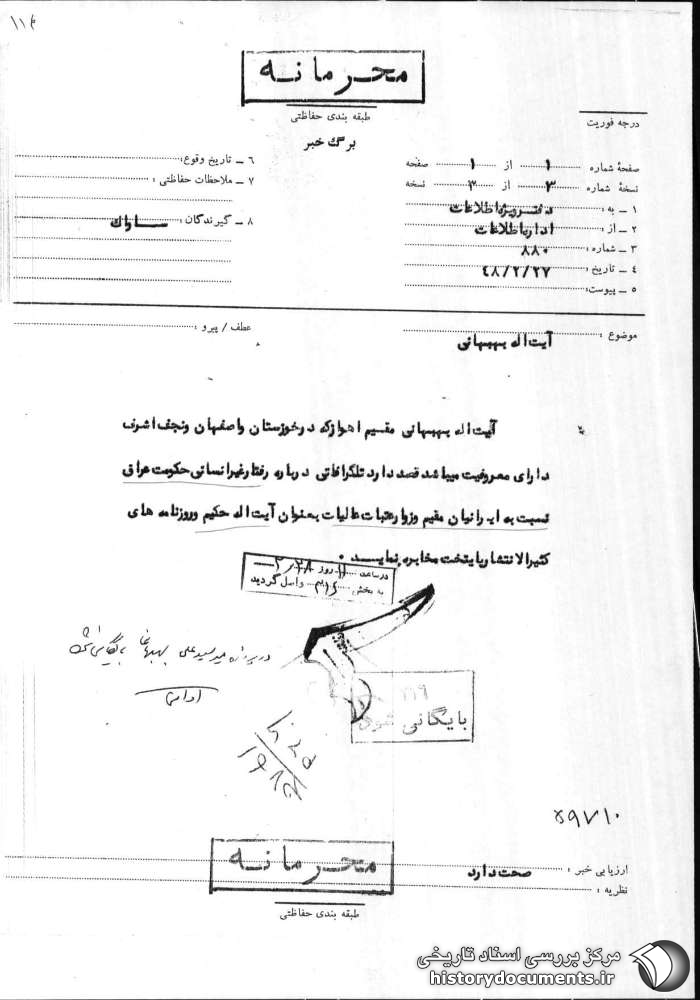 ۱۱۴
محرمانه
طبقه بندی حفاظتی
برگ خبر
درجه فوریت
صفحهٔ شماره ۱ از ۱ صفحه
نسخهٔ شماره ۳ از ۳ نسخه
۱ ـ به : دفتر ویژه اطلاعات
۲ ـ از : اداره اطلاعات
۳ ـ شماره : ۸۸۰
۴ ـ تاریخ : ۴۸/۲/۲۷
۵ ـ پیوست:
۶ ـ تاریخ وقوع:
۷ ـ ملاحظات حفاظتی :
۸ ـ گیرندگان : ساواک
موضوع : آیت اله بهبهانی
عطف / پیرو :
آیت اله بهبهانی مقیم اهواز که در خوزستان واصفهان ونجف اشرف
دارای معروفیت میباشد قصد دارد تلگرافاتی درباره رفتار غیر انسانی حکومت عراق
نسبت به ایرانیان مقیم وزوار عتبات عالیات بعنوان آیت اله حکیم وروزنامه های
کثیرالانتشار پایتخت مخابره نمایـد .
در ساعت ۱۱ روز ۲/۲۸
به بخش ۳۱۶ واصل گردید
در پرونده میر سید علی بهبهانی بایگانی شود
۳۱۹
بایگانی شود
۵۹۷۱۰
ارزیابی خبر : صحت دارد
نظریه :
محرمانه
طبقه بندی حفاظتی
مرکز بررسی اسناد تاریخی
historydocuments.ir